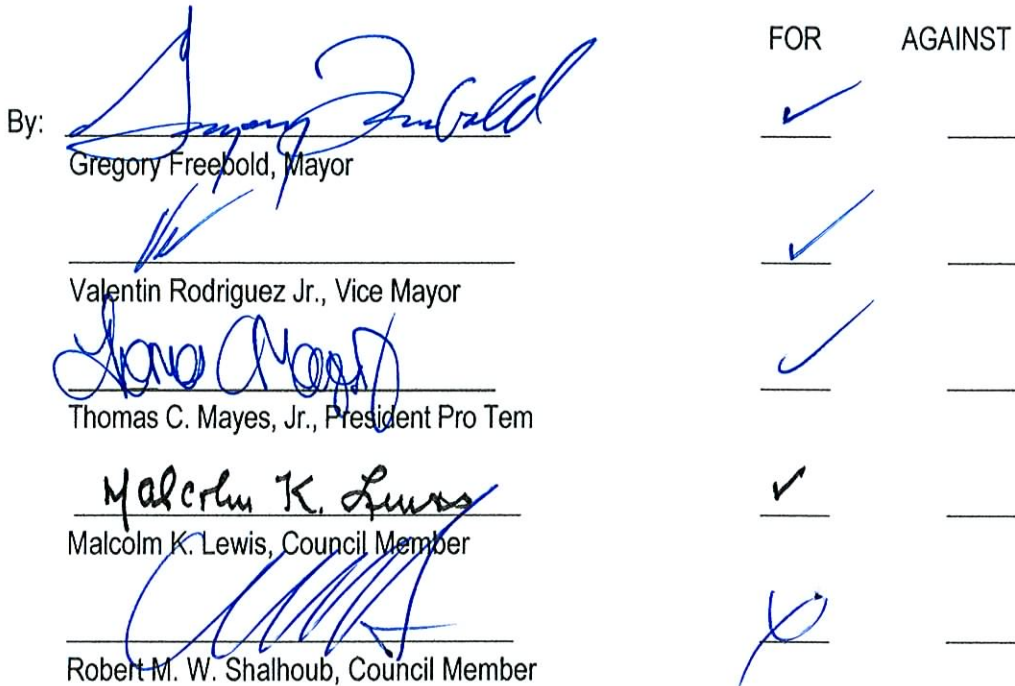 FOR AGAINST
By: Gregory Freebold ✓
Gregory Freebold, Mayor
✓
Valentin Rodriguez Jr., Vice Mayor
✓
Thomas C. Mayes, Jr., President Pro Tem
Malcolm K. Lewis ✓
Malcolm K. Lewis, Council Member
Robert M. W. Shalhoub, Council Member